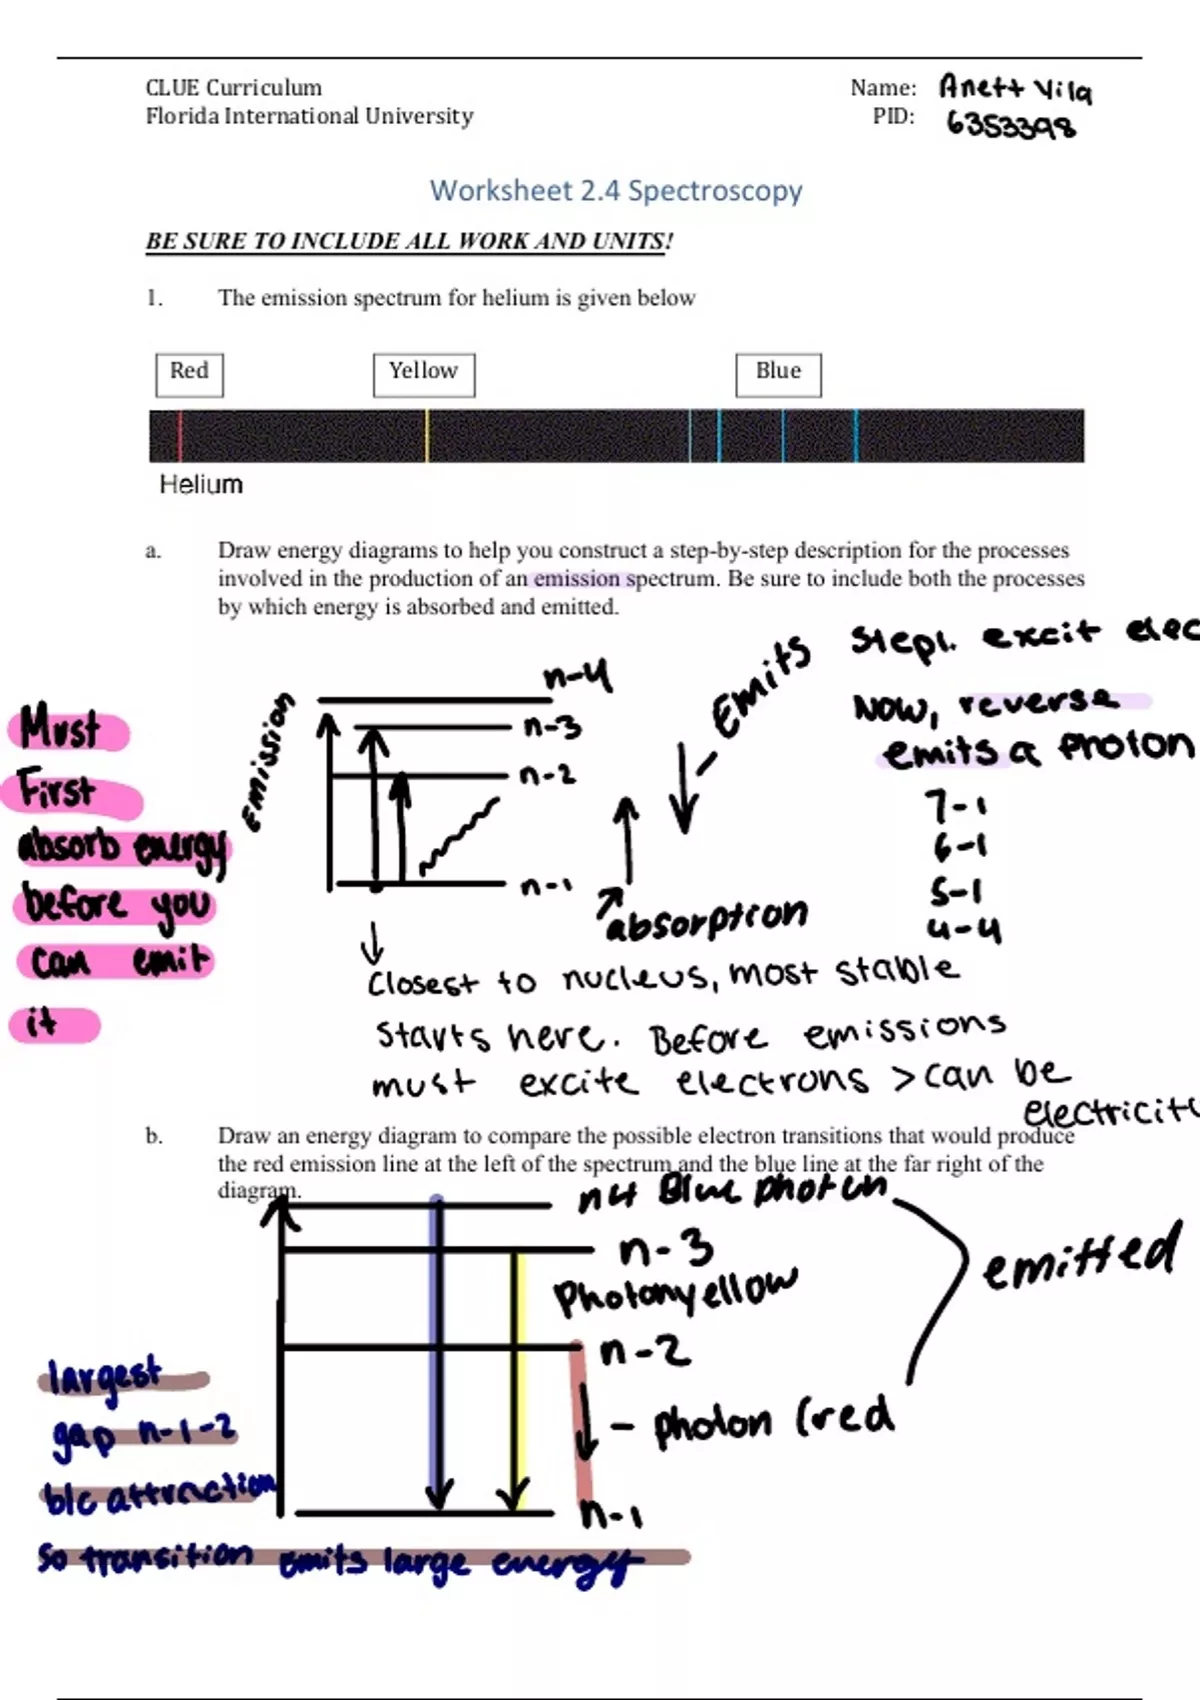 CLUE Curriculum
Florida International University
Name: Anett Vila
PID: 6353398
Worksheet 2.4 Spectroscopy
BE SURE TO INCLUDE ALL WORK AND UNITS!
1. The emission spectrum for helium is given below
Red Yellow Blue
Helium
a. Draw energy diagrams to help you construct a step-by-step description for the processes
involved in the production of an emission spectrum. Be sure to include both the processes
by which energy is absorbed and emitted.
Must
First
absorb energy
before you
can emit
it
Emission
n-4
n-3
n-2
n-1
- Emits
absorption
Step1. excit elec
Now, reverse
emits a Photon
7-1
6-1
5-1
4-4
Closest to nucleus, most stable
Starts here. Before emissions
must excite electrons > can be
electricit
b. Draw an energy diagram to compare the possible electron transitions that would produce
the red emission line at the left of the spectrum and the blue line at the far right of the
diagram.
n4 Blue photon
n-3
Photon yellow
n-2
- photon (red
n-1
emitted
largest
gap n-1-2
b/c attraction
So transition emits large energy